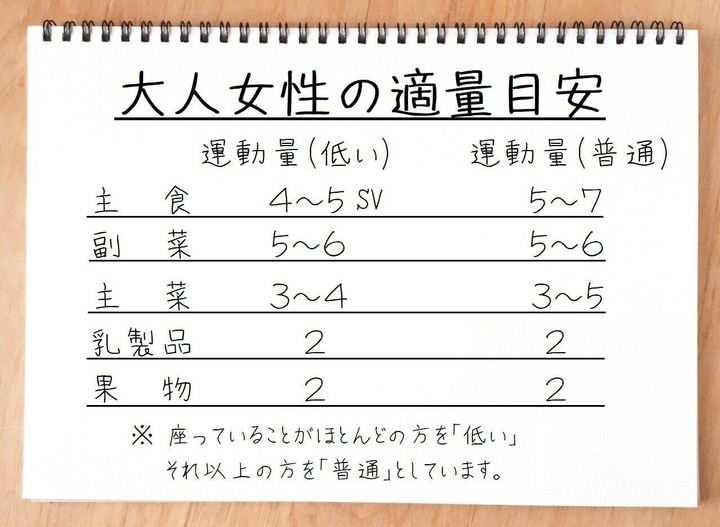 大人女性の適量目安
運動量(低い) 運動量(普通)
主食 4～5 SV 5～7
副菜 5～6 5～6
主菜 3～4 3～5
乳製品 2 2
果物 2 2
※ 座っていることがほとんどの方を「低い」
それ以上の方を「普通」としています。